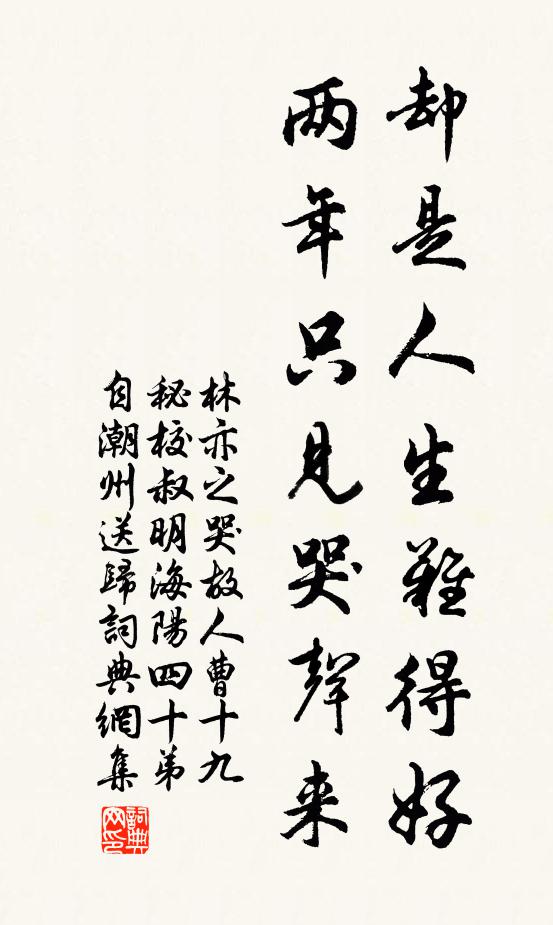 却是人生難得好
两年只見哭聲来
林亦之哭故人曹十九
秘校叔明海陽四十弟
自潮州送歸詞典網集
詞典网印